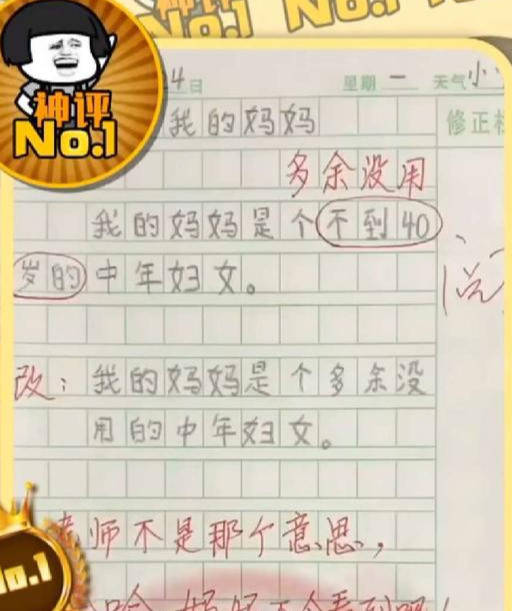 神评
No.1
4日 星期一 天气小
我的妈妈
修正栏
多余没用
我的妈妈是个不到40
岁的中年妇女。
改：我的妈妈是个多余没
用的中年妇女。
老师不是那个意思，
No.1